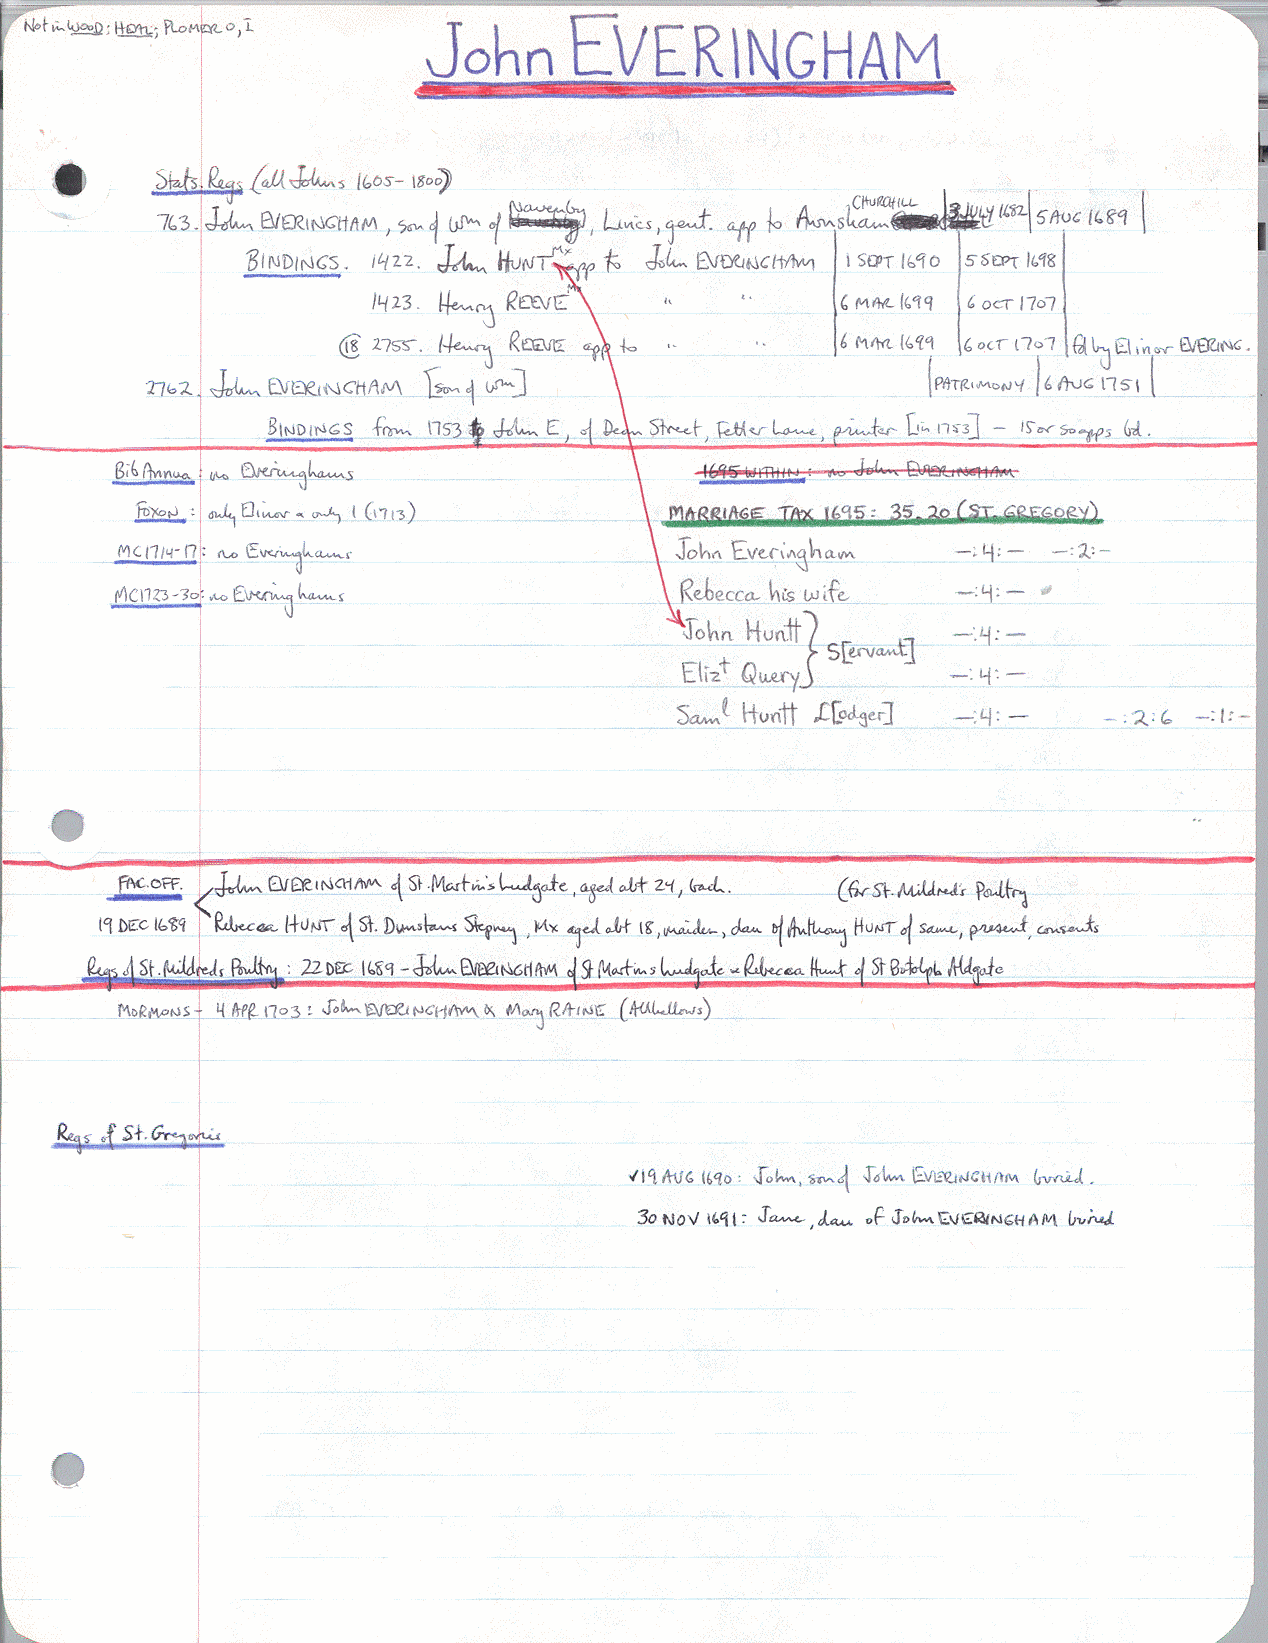 Not in WOOD; HEAL; PLOMER O, I
John EVERINGHAM
Stats. Regs (all Johns 1605-1800)
763. John EVERINGHAM, son of Wm of Navenby, Lincs, gent. app to Awnsham CHURCHILL | 3 JULY 1682 | 5 AUG 1689 |
BINDINGS. 1422. John HUNT Mx app to John EVERINGHAM | 1 SEPT 1690 | 5 SEPT 1698 |
1423. Henry REEVE Mx " " | 6 MAR 1699 | 6 OCT 1707 |
18 2755. Henry REEVE app to " " | 6 MAR 1699 | 6 OCT 1707 | fd by Elinor EVERING.
2762. John EVERINGHAM [son of Wm] | PATRIMONY | 6 AUG 1751 |
BINDINGS from 1753 to John E, of Dean Street, Fetter Lane, printer [in 1753] - 15 or so apps bd.
Bib Annua: no Everinghams
1695 WITHIN: no John EVERINGHAM
FOXON: only Elinor & only 1 (1713)
MARRIAGE TAX 1695: 35.20 (ST. GREGORY)
MC1714-17: no Everinghams
John Everingham —:4:— —:2:-
MC1723-30: no Everinghams
Rebecca his wife —:4:—
John Huntt } S[ervant] —:4:—
Elizt Query —:4:—
Saml Huntt L[odger] —:4:— —:2:6 —:1:-
FAC.OFF. John EVERINGHAM of St. Martin's Ludgate, aged abt 24, bach. (for St. Mildred's Poultry
19 DEC 1689 Rebecca HUNT of St. Dunstans Stepney, Mx aged abt 18, maiden, dau of Anthony HUNT of same, present, consents
Regs of St. Mildreds Poultry: 22 DEC 1689 - John EVERINGHAM of St Martins Ludgate & Rebecca Hunt of St Botolph Aldgate
MORMONS - 4 APR 1703: John EVERINGHAM & Mary RAINE (Allhallows)
Regs of St. Gregories
✓19 AUG 1690: John, son of John EVERINGHAM buried.
30 NOV 1691: Jane, dau of John EVERINGHAM buried